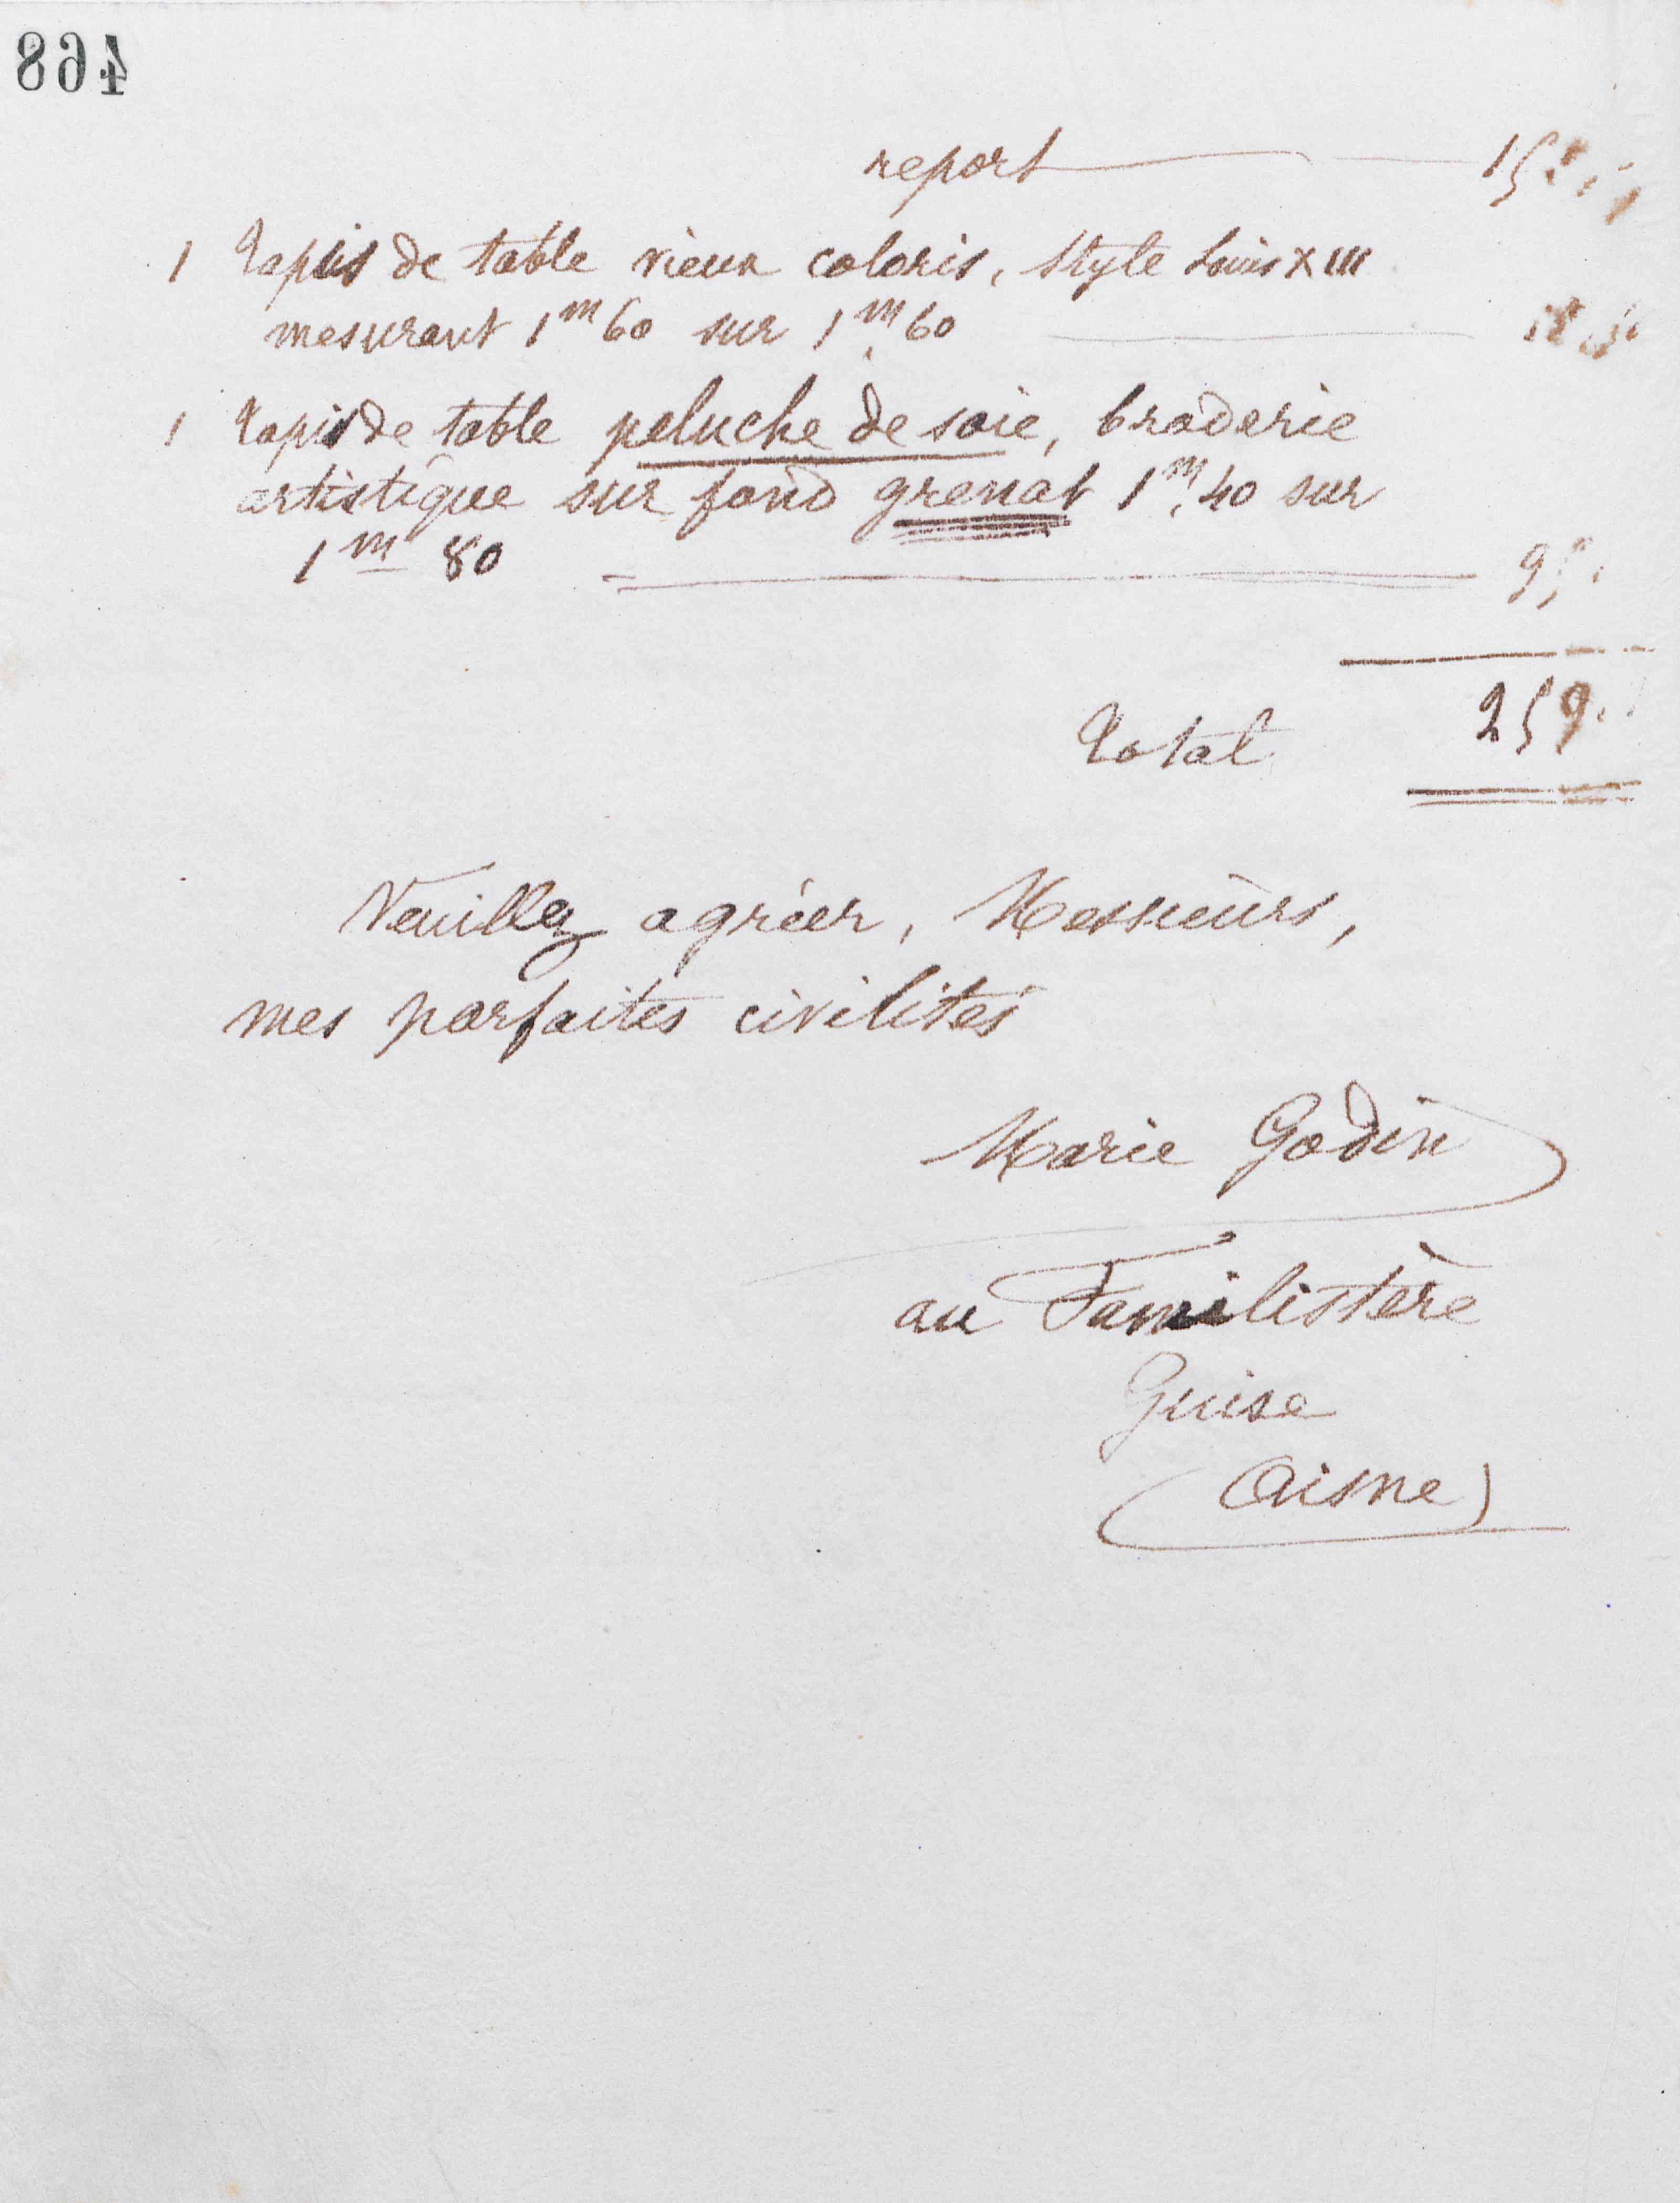 468
report 15
1 Tapis de table vieux coloris, style Louis XIII
mesurant 1m60 sur 1m60
1 Tapis de table peluche de soie, broderie
artistique sur fond grenat 1m,40 sur
1m 80 9
Total 259
Veuillez agréer, Messieurs,
mes parfaites civilités
Marie Godin
au Familistère
Guise
(Aisne)